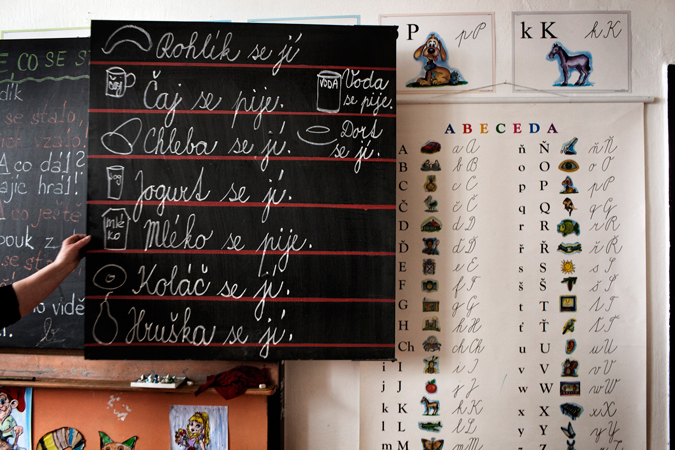 Rohlík se jí
ČAJ
Čaj se pije.
VODA
Voda
se pije.
Chleba se jí.
Dort
se jí.
Jogurt se jí.
mlé
ko
Mléko se pije.
Koláč se jí.
Hruška se jí.
CO SE ST
se stalo,
Co dál?
hrál!
ještě
pouk z
P pP
k K kK
ABECEDA
A aA
B bB
C cC
Č čČ
D dD
Ď ďĎ
E eE
F fF
G gG
H hH
Ch chCh
i I iI
j J jJ
k K kK
l L lL
m M mM
ň Ň ňŇ
o O oO
p P pP
q Q qQ
r R rR
ř Ř řŘ
s S sS
š Š šŠ
t T tT
ť Ť ťŤ
u U uU
v V vV
w W wW
x X xX
y Y yY
z Z